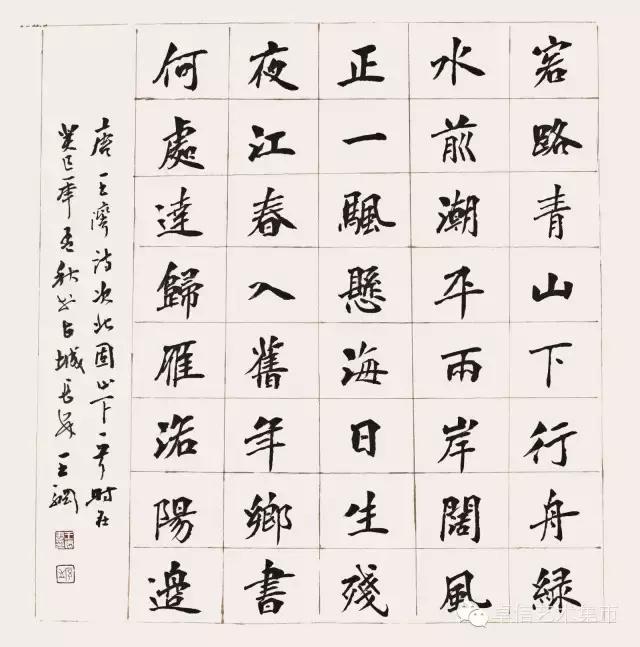 客路青山下行舟緑
水前潮平兩岸闊風
正一颿懸海日生殘
夜江春入舊年鄉書
何處達歸雁洛陽邊
唐王灣詩次北固山下一首時在
癸巳年孟秋於古城長安王
卓信艺术集市